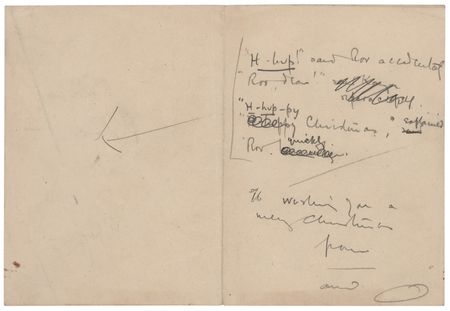 "H-hup!" said Ror accidental
"Ror, dear!"
"H-hup-py
Christmas,"
Ror quickly.
wishing you a
merry Christmas
from
and